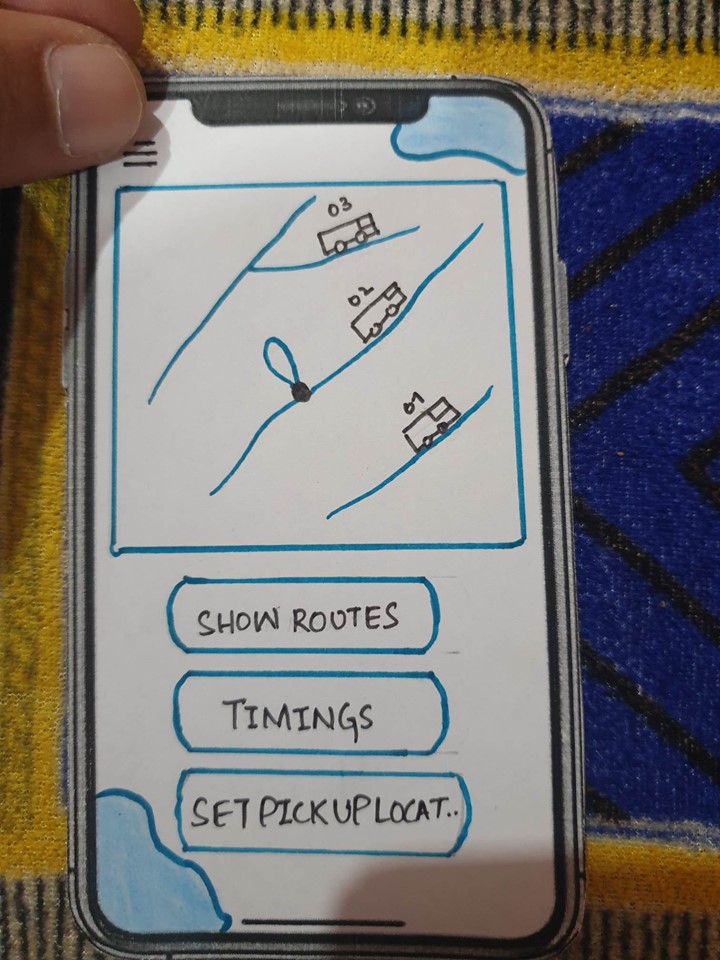 03
02
01
SHOW ROUTES
TIMINGS
SET PICKUP LOCAT..